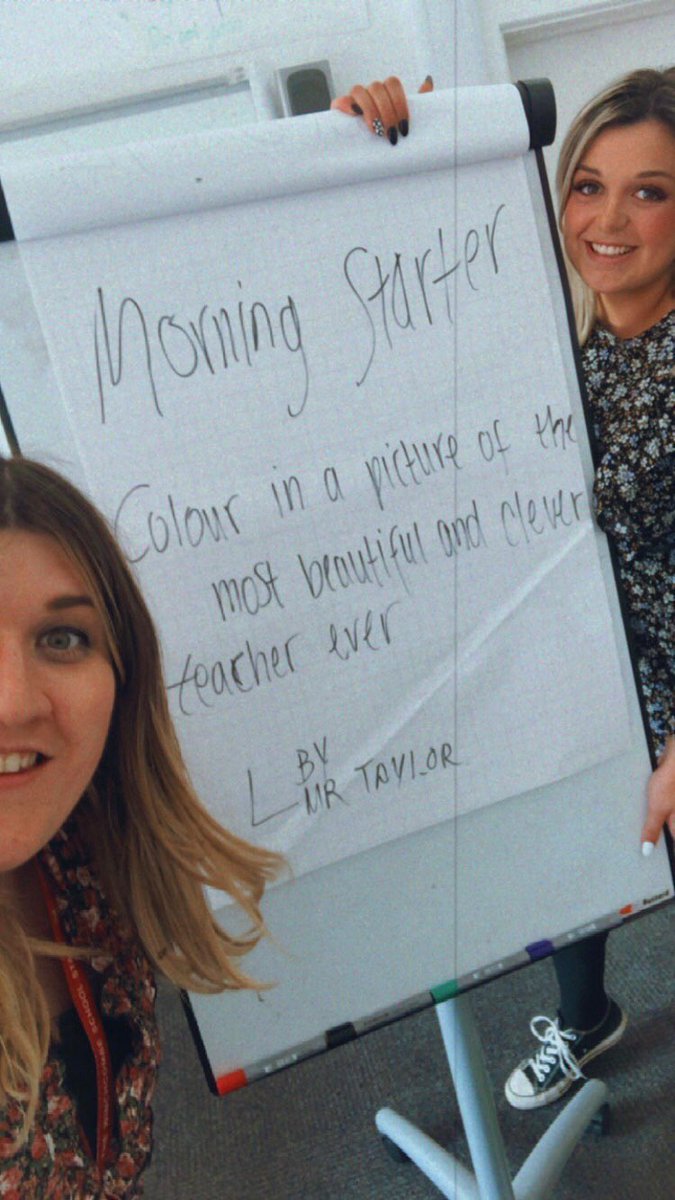 Morning Starter
Colour in a picture of the
most beautiful and clever
teacher ever
BY
MR TAYLOR
SCHOOL ST